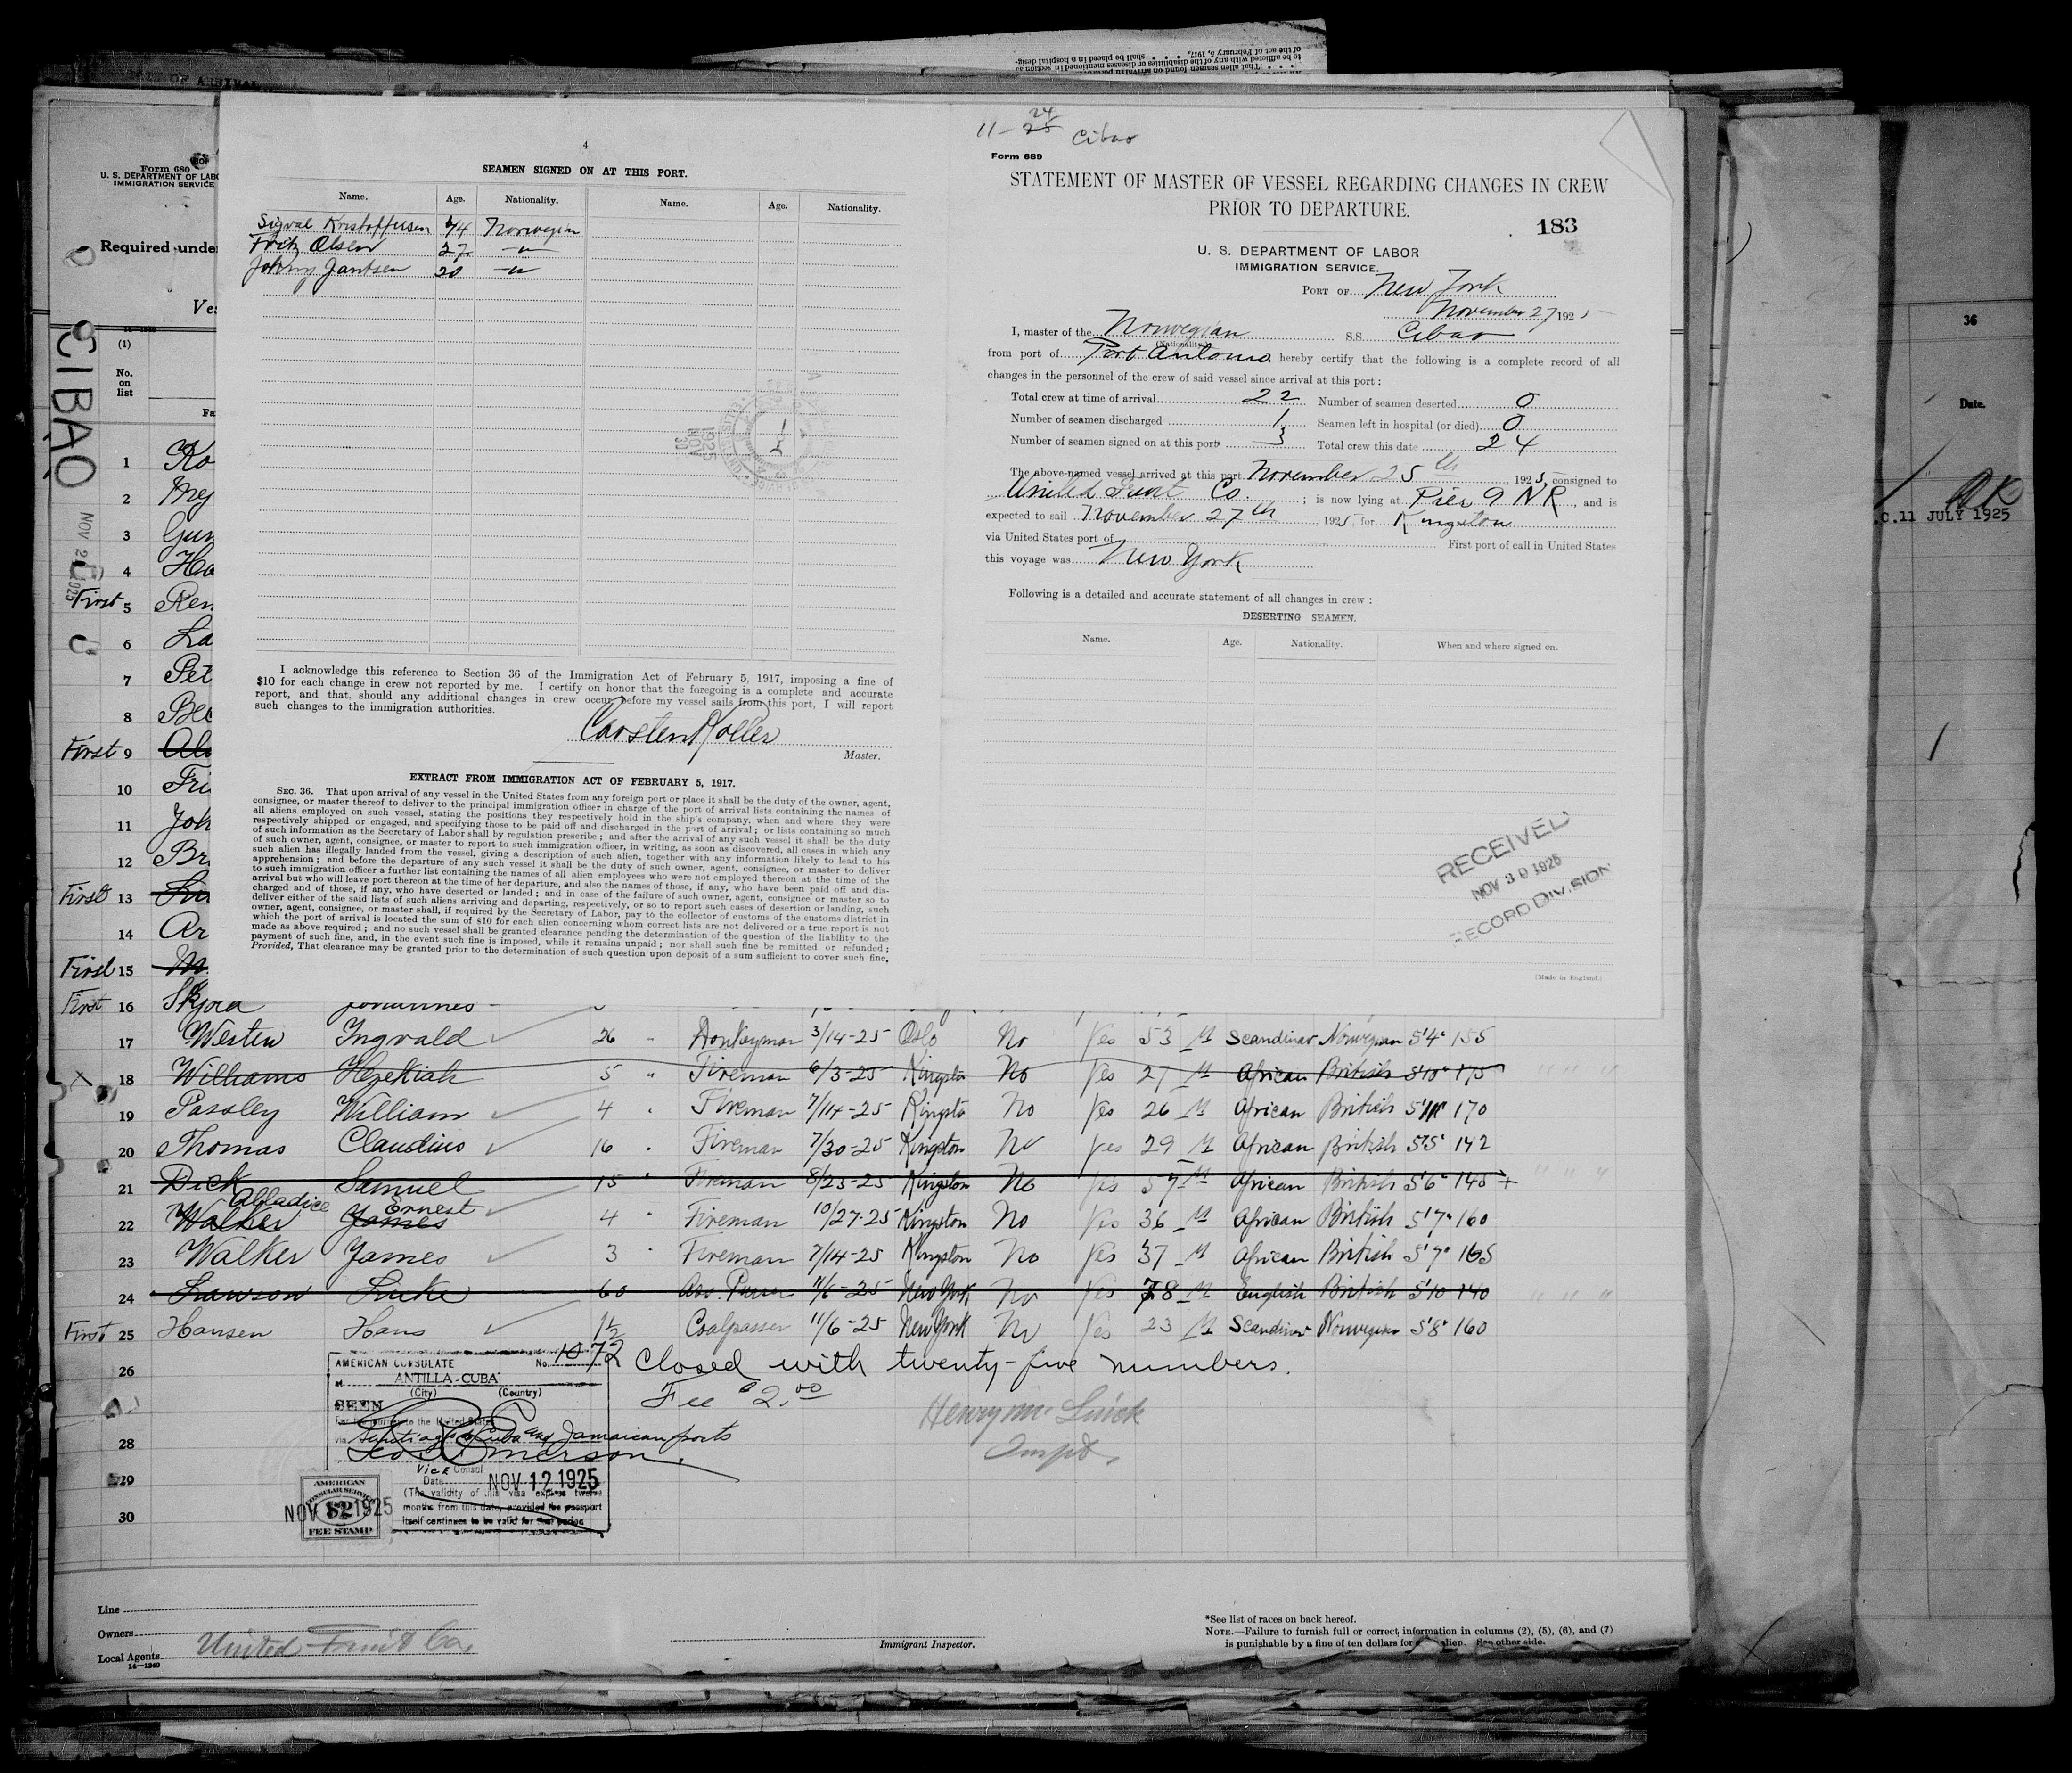 11-24
25
Cibao
4
SEAMEN SIGNED ON AT THIS PORT.
Name. Age. Nationality. Name. Age. Nationality.
Sigval Kristoffersen 44 Norwegian
Fritz Olsen 27 -"-
Johnny Jantsen 20 -"-
I acknowledge this reference to Section 36 of the Immigration Act of February 5, 1917, imposing a fine of
$10 for each change in crew not reported by me. I certify on honor that the foregoing is a complete and accurate
report, and that should any additional changes in crew occur before my vessel sails from this port, I will report
such changes to the immigration authorities.
Master.
EXTRACT FROM IMMIGRATION ACT OF FEBRUARY 5, 1917.
SEC. 36. That upon arrival of any vessel in the United States from any foreign port or place it shall be the duty of the owner, agent,
consignee, or master thereof to deliver to the principal immigration officer in charge of the port of arrival lists containing the names of
all aliens employed on such vessel, stating the positions they respectively hold in the ship's company, when and where they were
respectively shipped or engaged, and specifying those to be paid off and discharged in the port of arrival; or lists containing so much
of such information as the Secretary of Labor shall by regulation prescribe; and after the arrival of any such vessel it shall be the duty
of such owner, agent, consignee, or master to report to such immigration officer, in writing, as soon as discovered, all cases in which any
such alien has illegally landed from the vessel, giving a description of such alien, together with any information likely to lead to his
apprehension; and before the departure of any such vessel it shall be the duty of such owner, agent, consignee, or master to deliver
to such immigration officer a further list containing the names of all alien employees who were not employed thereon at the time of the
arrival but who will leave port thereon at the time of her departure, and also the names of those, if any, who have been paid off and dis-
charged and of those, if any, who have deserted or landed; and in case of the failure of such owner, agent, consignee or master so to
deliver either of the said lists of such aliens arriving and departing, respectively, or so to report such cases of desertion or landing, such
owner, agent, consignee, or master shall, if required by the Secretary of Labor, pay to the collector of customs of the customs district in
which the port of arrival is located the sum of $10 for each alien concerning whom correct lists are not delivered or a true report is not
made as above required; and no such vessel shall be granted clearance pending the determination of the question of the liability to the
payment of such fine, and, in the event such fine is imposed, while it remains unpaid; nor shall such fine be remitted or refunded;
Provided, That clearance may be granted prior to the determination of such question upon deposit of a sum sufficient to cover such fine,
Form 689
STATEMENT OF MASTER OF VESSEL REGARDING CHANGES IN CREW
PRIOR TO DEPARTURE.
183
U. S. DEPARTMENT OF LABOR
IMMIGRATION SERVICE.
PORT OF New York
November 27, 1925
I, master of the Norwegian S.S. Cibao
(Nationality)
from port of Port Antonio hereby certify that the following is a complete record of all
changes in the personnel of the crew of said vessel since arrival at this port:
Total crew at time of arrival 22 Number of seamen deserted 0
Number of seamen discharged 1 Seamen left in hospital (or died) 0
Number of seamen signed on at this port 3 Total crew this date 24
The above-named vessel arrived at this port November 25th, 1925, consigned to
United Fruit Co.; is now lying at Pier 9 NR, and is
expected to sail November 27th, 1925 for Kingston
via United States port of First port of call in United States
this voyage was New York
Following is a detailed and accurate statement of all changes in crew:
DESERTING SEAMEN.
Name. Age. Nationality. When and where signed on.
RECEIVED
NOV 30 1925
RECORD DIVISION
(Made in England.)
1925
NOV
30
Form 680
U. S. DEPARTMENT OF LABO
IMMIGRATION SERVICE
Required unde
Ves
(1)
No.
on
list
Fa
CIBAO
1 Ko
2 Mey
3 Gun
4 Ha
First 5 Ren
6 La
7 Pet
8 Bec
First 9 Al
10 Fri
11 Joh
12 Br
First 13
14 Ar
First 15 M
First 16 Johannes
17 Westen Ingvald 26 " Donkeyman 3/14-25 Oslo No Yes 53 M Scandinav Norwegian 5'4" 155
18 Williams Hezekiah 5 " Fireman 6/3-25 Kingston No Yes 27 M African British 5'10" 175 " " "
19 Passley William 4 " Fireman 7/14-25 Kingston No Yes 26 M African British 170
20 Thomas Claudius 16 Fireman 7/30-25 Kingston No Yes 29 M African British 5'5" 142
21 Dick Samuel 15 " Fireman 8/25-25 Kingston No Yes 57 M African British 5'6" 145 " " "
Alladice Ernest
22 Walker James 4 " Fireman 10/27-25 Kingston No Yes 36 M African British 5'7" 160
23 Walker James 3 " Fireman 7/14-25 Kingston No Yes 37 M African British 5'7" 165
24 Lawson Luke 60 Ass. Purser 11/6-25 New York No Yes M English British 5'10 140 " " "
First 25 Hansen Hans 1½ Coalpasser 11/6-25 New York No Yes 23 M Scandinav Norwegian 5'8" 160
26 closed with twenty-five numbers.
Fee $2.00
28
29
30
AMERICAN CONSULATE No. 1072
at ANTILLA-CUBA
(City) (Country)
SEEN
For the journey to the United States
via Santiago de Cuba and Jamaican ports
Vice Consul
Date NOV 12 1925
(The validity of this visa expires twelve
months from this date, provided the passport
itself continues to be valid for that period
AMERICAN
CONSULAR SERVICE
$2
FEE STAMP
NOV 12 1925
Line
Owners
Local Agents United Fruit Co.
14-1240
Immigrant Inspector.
*See list of races on back hereof.
NOTE.—Failure to furnish full or correct information in columns (2), (5), (6), and (7)
is punishable by a fine of ten dollars for alien. See other side.
36
Date.
OK
.C.11 JULY 1925